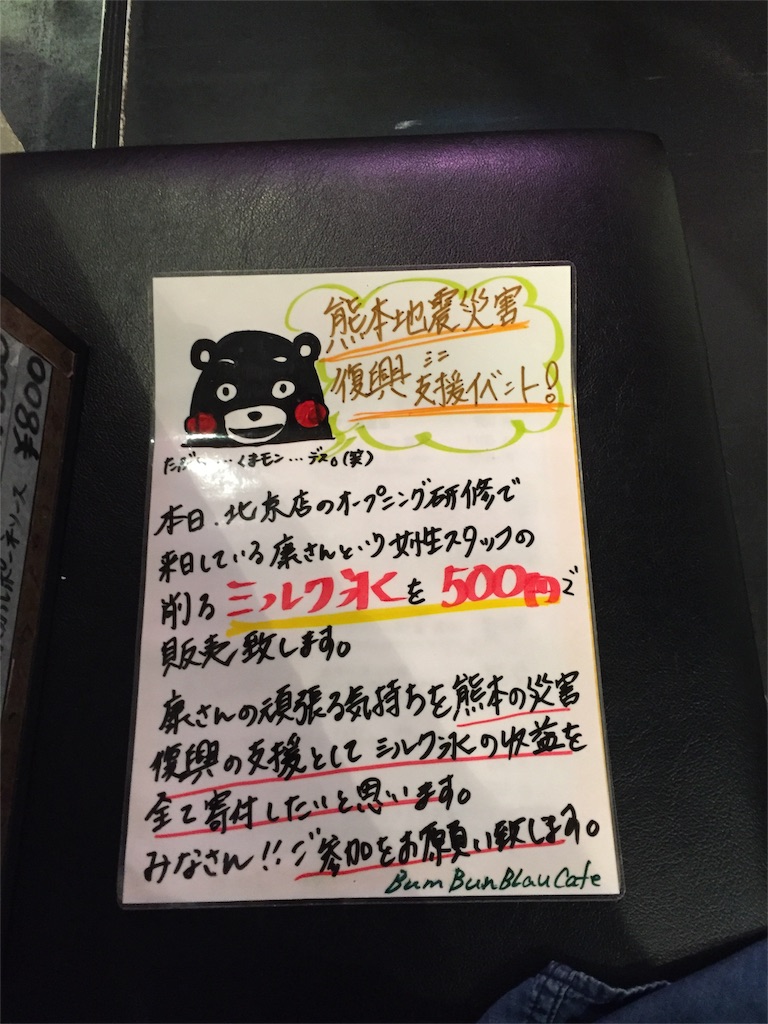 熊本地震災害
復興ミニ支援イベント!
くまモン…デス。(笑)
本日、北京店のオープニング研修で
来日している康さんという女性スタッフの
削るミルク氷を500円で
販売致します。
康さんの頑張る気持ちを熊本の災害
復興の支援としてミルク氷の収益を
全て寄付したいと思います。
みなさん!!ご参加をお願い致します。
Bum Bun Blau Cafe
¥800